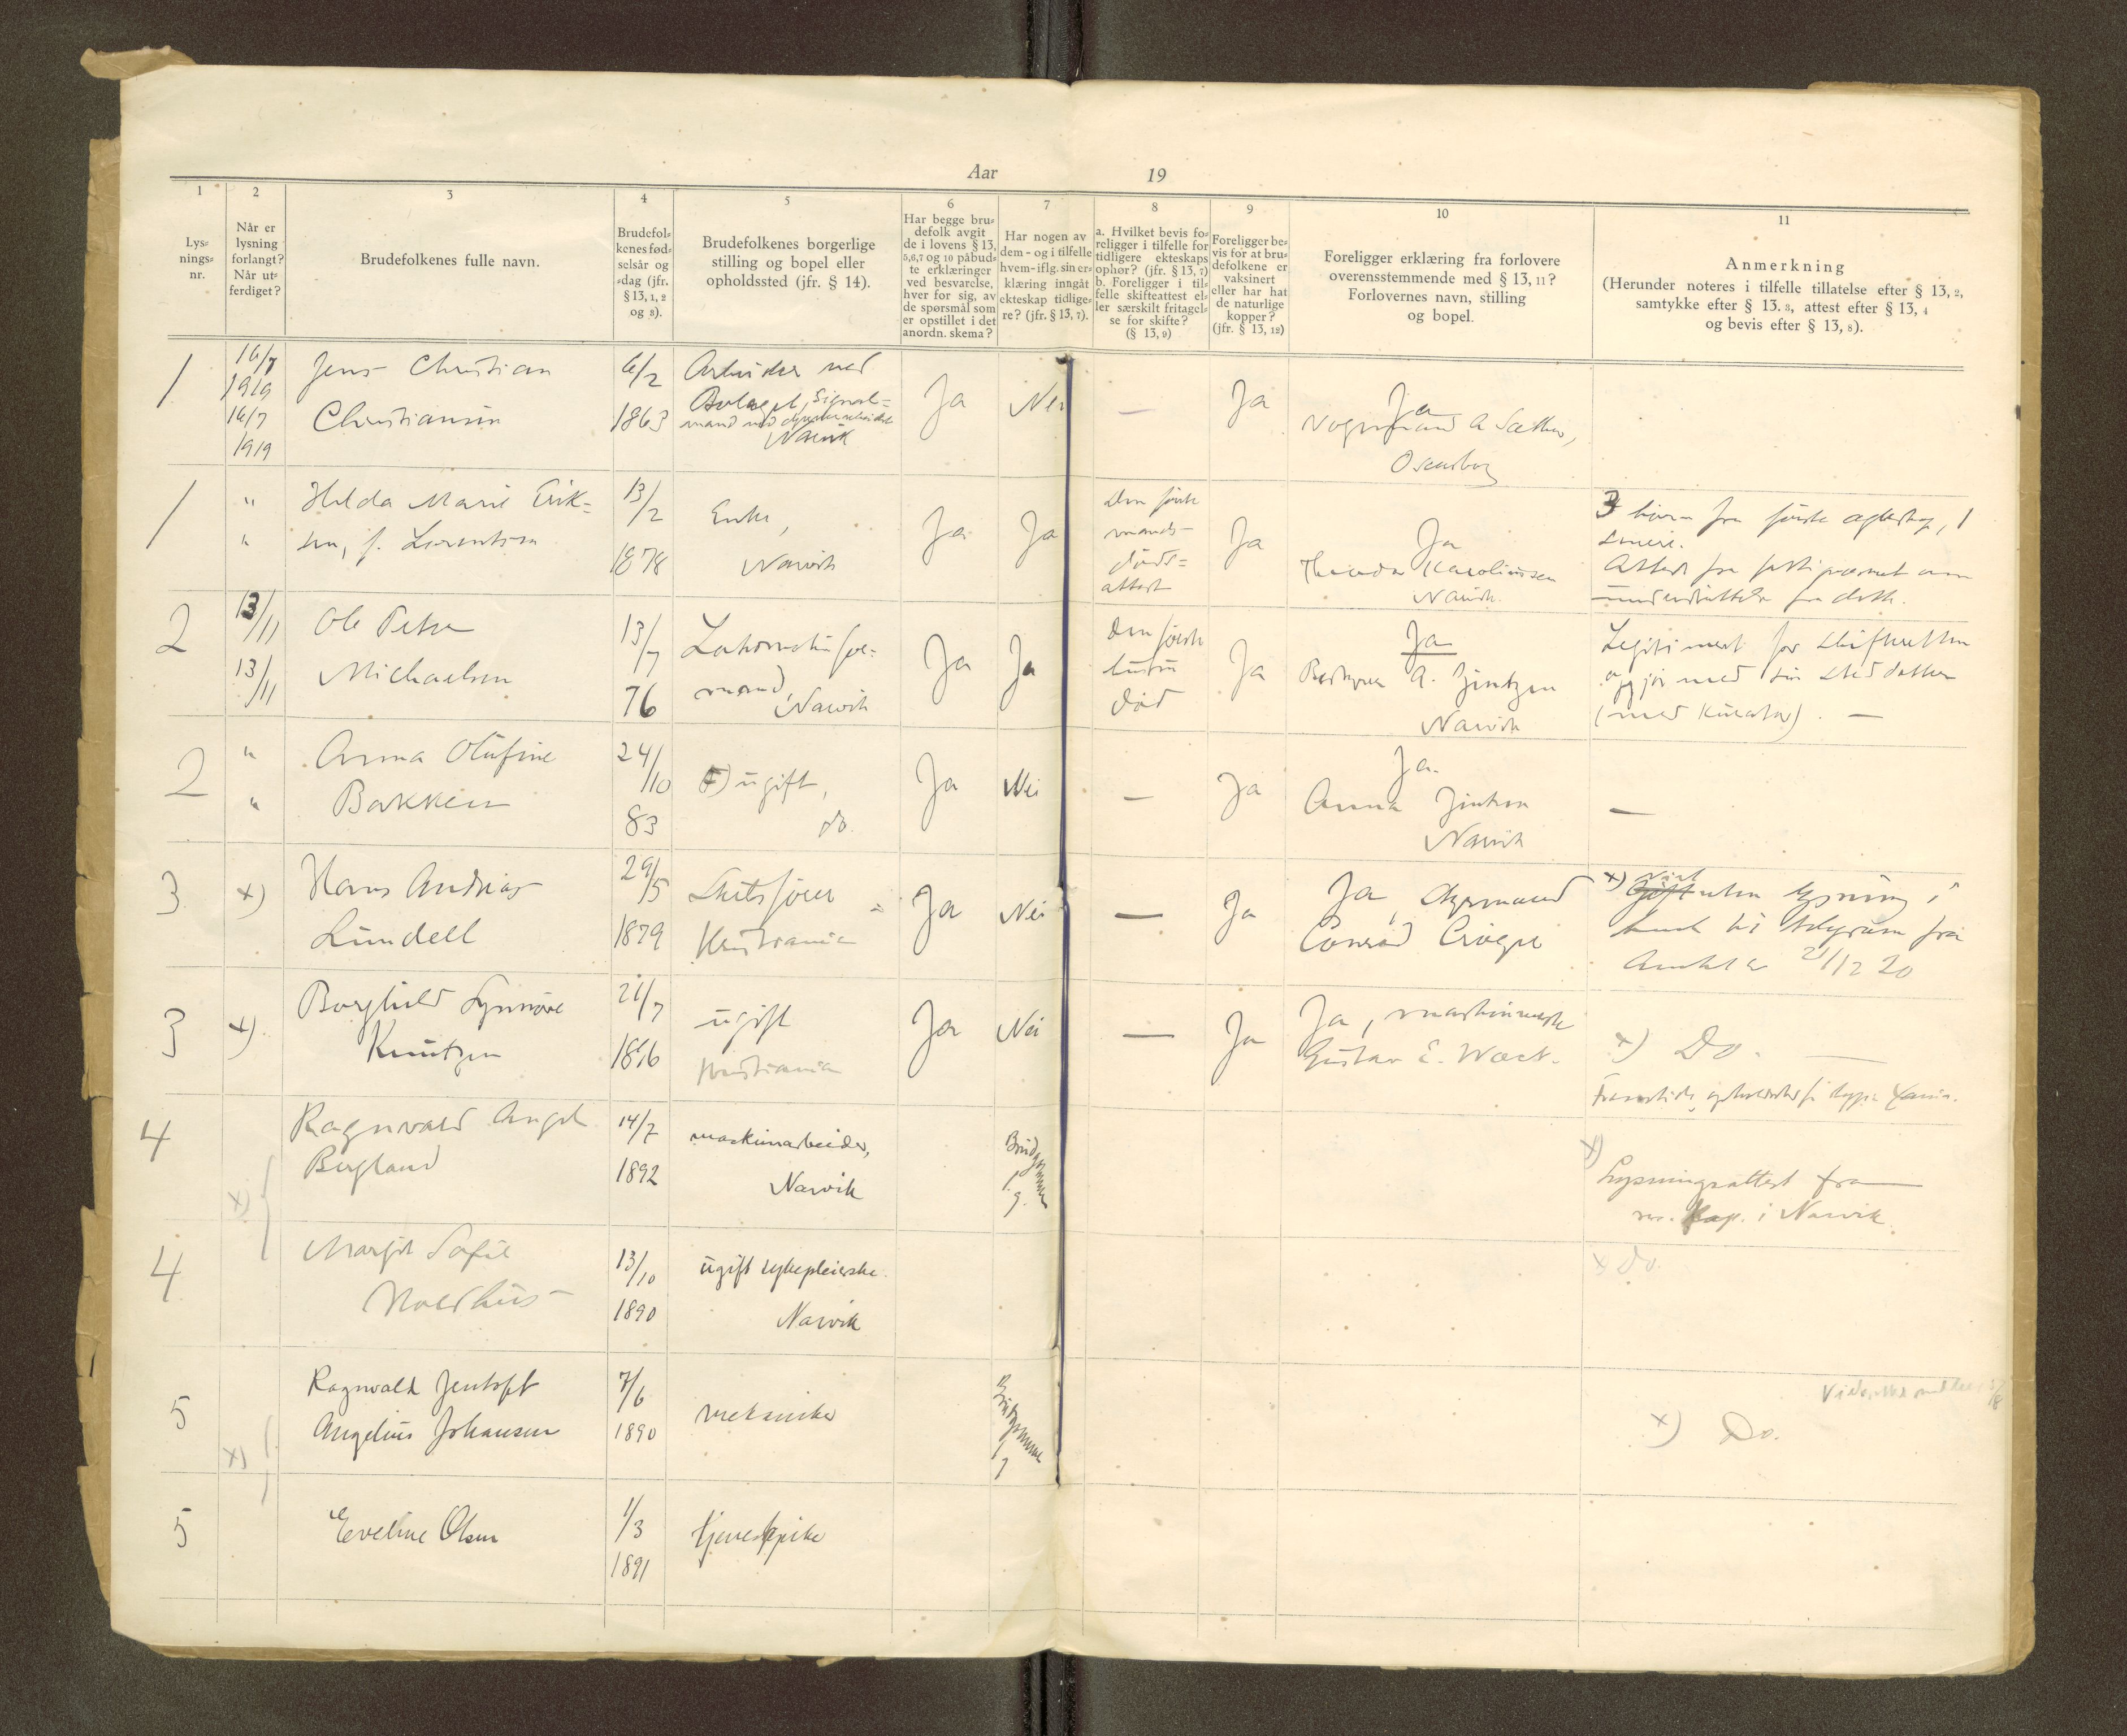 Aar 19
1
2
3
4
5
6
7
8
9
10
11
Lys-
nings-
nr.
Når er
lysning
forlangt?
Når ut-
ferdiget?
Brudefolkenes fulle navn.
Brudefol-
kenes fød-
selsår og
-dag (jfr.
§ 13, 1, 2
og 8).
Brudefolkenes borgerlige
stilling og bopel eller
opholdssted (jfr. § 14).
Har begge bru-
defolk avgit
de i lovens § 13,
5,6,7 og 10 påbud-
te erklæringer
ved besvarelse,
hver for sig, av
de spørsmål som
er opstillet i det
anordn. skema?
Har nogen av
dem - og i tilfelle
hvem - iflg. sin er-
klæring inngåt
ekteskap tidlige-
re? (jfr. § 13, 7).
a. Hvilket bevis fo-
religger i tilfelle for
tidligere ekteskaps
ophør? (jfr. § 13, 7)
b. Foreligger i til-
felle skifteattest el-
ler særskilt fritagel-
se for skifte?
(§ 13, 9)
Foreligger be-
vis for at bru-
defolkene er
vaksinert
eller har hat
de naturlige
kopper?
(jfr. § 13, 12)
Foreligger erklæring fra forlovere
overensstemmende med § 13, 11?
Forlovernes navn, stilling
og bopel.
Anmerkning
(Herunder noteres i tilfelle tillatelse efter § 13, 2,
samtykke efter § 13. 3, attest efter § 13, 4
og bevis efter § 13, 8).
1
16/7
1919
16/7
1919
Jens Christian
Christiansen
6/2
1863
Arbeider ved
Bolaget, Signal-
mand ved
Narvik
Ja
Nei
—
Ja
Ja
Vognmand A Sæther,
1
"
"
Hilda Marie Erik-
sen, f. Lorentsen
13/2
1878
Enke,
Narvik
Ja
Ja
Den første
mands
døds-
attest
Ja
Ja
Karolinssen
Narvik.
3 barn fra første ægteskap, 1
senere.
Attest fra
fra dette.
2
13/11
13/11
Ole Peter
Michaelsen
13/7
76
Lokomotivfor-
mand,
Narvik
Ja
Ja
Den første
hustru
død
Ja
Ja
Bestyrer A. Jintzen
Narvik
Legitimert for skifteretten
opgjør med sin steddatter
(med Kurator). —
2
"
"
Anna Olufine
Bakken
24/10
83
ugift,
do.
Ja
Nei
—
Ja
Ja.
Anna
Narvik
—
3
x)
Hans Andreas
Lundell
29/5
1879
Skibsfører
Kristiania
Ja
Nei
—
Ja
Ja,
Conrad
x) Viet
uten lysning i
telegram fra
21/12 20
3
x)
Borghild Synnøve
Knutzen
21/7
1896
ugift
Kristiania
Ja
Nei
—
Ja
Ja, maskinmester
Gustav E.
x) Do. —
4
x)
Ragnvald Angel
Bergland
14/7
1892
maskinarbeider,
Narvik
Brudgommen
1 g.
x)
Lysningsattest fra
res. Kap. i Narvik
4
Margit Sofie
Noldhus
13/10
1890
ugift sykepleierske.
Narvik
x Do.
5
x)
Ragnvald Jentoft
Angelius Johansen
7/6
1890
mekaniker
Brudgommen
1 g
x) Do.
5
Eveline Olsen
1/3
1891
tjenestepike